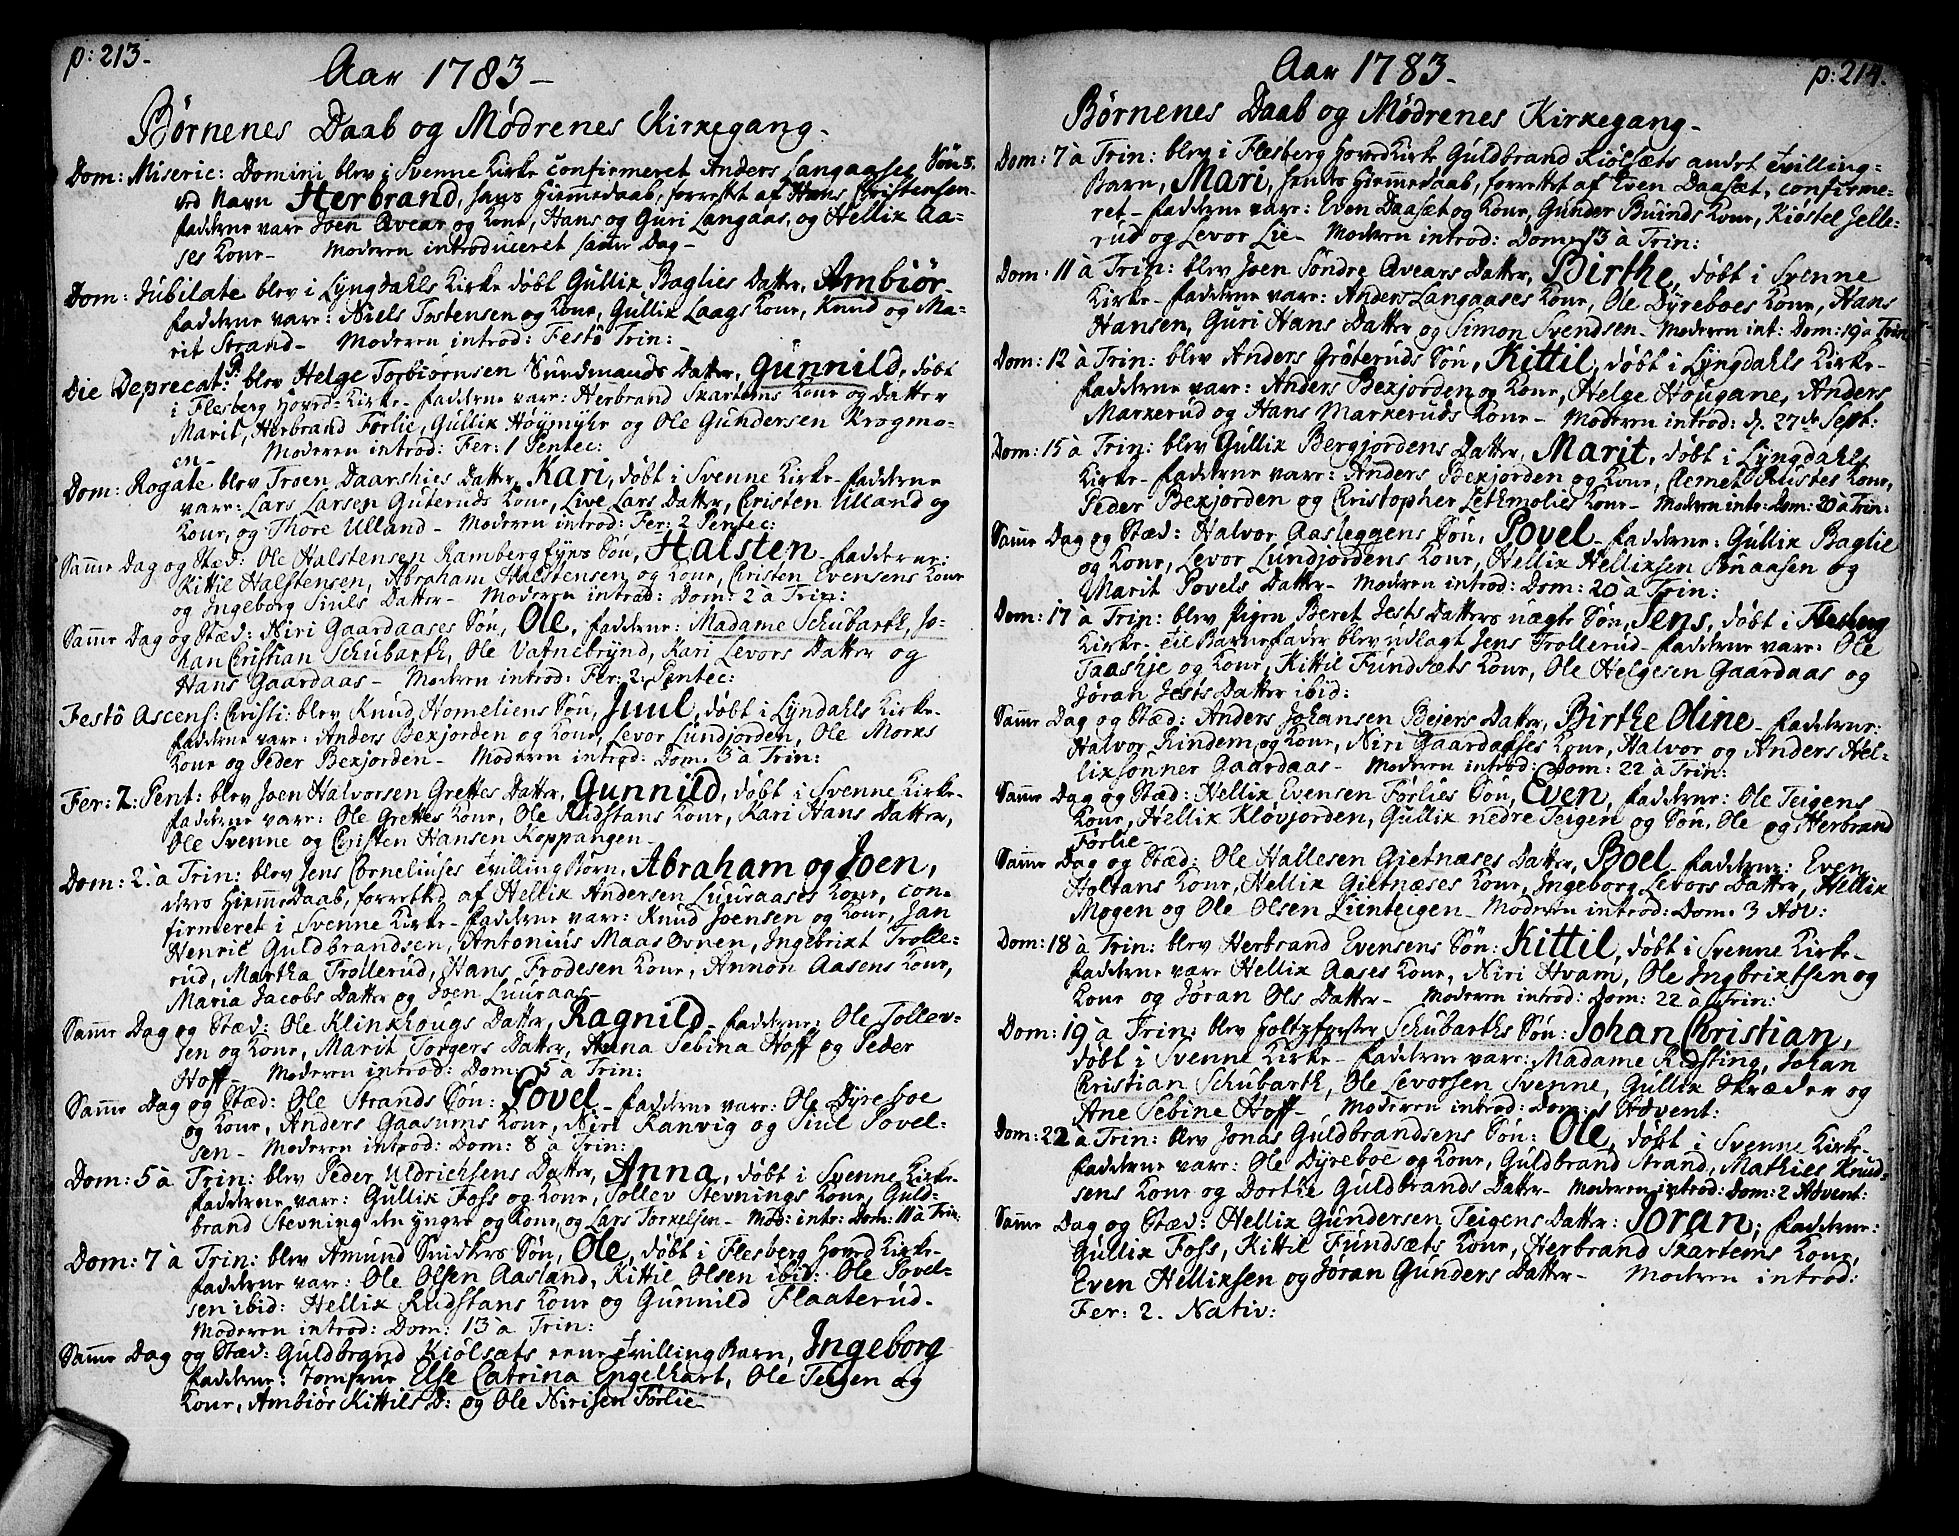 p: 213.
Aar 1783 –
Børnenes Daab og Mødrenes Kirkegang –
Dom: Miseric: Domini blev i Svenne Kirke confirmeret Anders Langaases Søn
ved Navn Herbrand, hans Hiemmedaab, forrettet af Hans Christensen –
Fadderne vare Joen Avear og Kone, Hans og Guri Langaas, og Hellix Aa=
ses Kone – Moderen introduceret samme Dag –
Dom: Jubilate blev i Lyngdahls Kirke døbt Gullix Baglies Datter, Ambiør –
Fadderne vare: Niels Tostensen og Kone, Gullix Laags Kone, Knud og Ma=
rit Strand – Moderen introd: Festo Trin: –
Die Deprecat: P: blev Helge Torbiørnsen Sundmands Datter, Gunnild, døbt
i Flesberg Hoved=Kirke – Fadderne vare: Herbrand Skartems Kone og Datter
Marit, Herbrand Førlie, Gullix Høymyhr og Ole Gundersen Krogmo=
en – Moderen introd: Fer: 1 Pentec:
Dom: Rogate blev Troen Daarshies Datter, Kari, døbt i Svenne Kirke – Fadderne
vare: Lars Larsen Guteruds Kone, Live Lars Datter, Christen Ulland og
Kone, og Thore Ulland – Moderen introd: Fer: 2 Pentec:
Samme Dag og Stæd: Ole Halstensen Rambergeyns Søn, Halsten – Fadderne:
Kittil Halstensen, Abraham Halstensen og Kone, Christen Evensens Kone
og Ingeborg Siuls Datter – Moderen introd: Dom: 2 a Trin:
Samme Dag og Stæd: Niri Gaardaases Søn, Ole, Fadderne: Madame Schubarth, Jo=
han Christian Schubarth, Ole Vatnebrynd, Kari Levors Datter og
Hans Gaardaas – Moderen introd: Fer: 2. Pentec:
Festo Ascens: Christi: blev Knud Homeliens Søn, Juul, døbt i Lyndahls Kirke –
Fadderne vare: Anders Bexjorden og Kone, Levor Lundjorden, Ole Morks
Kone og Peder Bexjorden – Moderen introd: Dom: 3 à Trin:
Fer: 2: Pent: blev Joen Halvorsen Grettes Datter, Gunnild, døbt i Svenne Kirke –
Fadderne vare: Ole Grettes Kone, Ole Rudstans Kone, Kari Hans Datter,
Ole Svenne og Christen Hansen Koppangen –
Dom: 2. à Trin: blev Jens Corneliuses TvillingBørn, Abraham og Joen,
deres HiemmeDaab, forretted af Hellix Andersen Luuraases Kone, con=
firmeret i Svenne Kirke – Fadderne vare: Knud Joensen og Kone, Jan
Henric Guldbrandsen, Antonius Maas Ovnen, Ingebrixt Trolle=
rud, Martha Trollerud, Hans Frodesen Kone, Annon Aasens Kone,
Maria Jacobs Datter og Joen Luuraas –
Samme Dag og Stæd: Ole Klinkhougs Datter, Ragnild – Fadderne: Ole Tollev=
sen og Kone, Marit Torgers Datter, Anna Sebina Hoff og Peder
Hoff – Moderen introd: Dom: 5 à Trin:
Samme Dag og Stæd: Ole Strands Søn: Povel – Fadderne vare: Ole Dyreboe
og Kone, Anders Gaasums Kone, Niri Kanvig og Siul Povel=
sen – Moderen introd: Dom: 8 à Trin:
Dom: 5 à Trin: blev Peder Uldrichsens Datter, Anna, døbt i Svenne Kirke –
Fadderne vare: Gullix Foss og Kone, Tollev Stevnings Kone, Guld=
brand Stevning den yngre og Kone, og Lars Torkelsen – Mod: intr: Dom: 11 à Trin:
Dom: 7 à Trin: blev Amund Snidkers Søn, Ole, døbt i Flesberg Hoved Kirke –
Fadderne vare: Ole Olsen Aasland, Kittil Olsen ibid: Ole Povel=
sen ibid: Hellix Rudstans Kone og Gunnild Flaaterud –
Moderen introd: Dom: 13 à Trin:
Samme Dag og Stæd: Guldbrand Kiølsæts eene Tvilling Barn, Ingeborg
Fadderne: Jomfrue Else Catrina Engelhart, Ole Teigen og
Kone, Ambiør Kittils D: og Ole Nirisen Førlie –
Aar 1783 –
p: 214.
Børnenes Daab og Mødrenes Kirkegang –
Dom: 7 à Trin: blev i Flesberg HovedKirke Guldbrand Kiølsæts andet Tvilling=
Barn, Mari, hendes Hiemmedaab, forrettet af Even Daasæt, confirme=
ret – Fadderne vare: Even Daasæt og Kone, Gunder Buinds Kone, Kiøstel Jelle=
rud og Levor Lie – Moderen introd: Dom: 13 à Trin:
Dom: 11 à Trin: blev Joen Søndre Avears Datter, Birthe, døbt i Svenne
Kirke – Fadderne vare: Anders Langaases Kone, Ole Dyreboes Kone, Hans
Hansen, Guri Hans Datter og Simon Svendsen – Moderen int: Dom: 19 à Trin
Dom: 12 à Trin: blev Anders Grøteruds Søn, Kittil, døbt i Lyngdahls Kirke –
Fadderne vare: Anders Bexjorden og Kone, Helge Hougane, Anders
Markerud og Hans Markeruds Kone – Moderen introd: d. 27de Sept:
Dom: 15 à Trin: blev Gullix Bergjordens Datter, Marit, døbt i Lyngdahls
Kirke – Fadderne vare: Anders Bexjorden og Kone, Clemet Rustes Kone,
Peder Bexjorden og Christopher Lethmolies Kone – Moderen intr: Dom: 20 à Trin:
Samme Dag og Stæd: Halvor Aasleggens Søn, Povel – Fadderne: Gullix Baglie
og Kone, Levor Lundjordens Kone, Hellix Hellixsen Sønaasen og
Marit Povels Datter – Moderen introd: Dom: 20 à Trin:
Dom: 17 à Trin: blev Pigen Beret Jests Datters uægte Søn, Jens, døbt i Flesberg
Kirke – til Barnefader blev udlagt Jens Trollerud – Fadderne vare: Ole
Taashje og Kone, Kittil Fundsæts Kone, Ole Helgesen Gaardaas og
Jøran Jests Datter ibid:
Samme Dag og Stæd: Anders Johansen Bejers Datter, Birthe Oline – Fadderne:
Halvor Rindem og Kone, Niri Gaardaases Kone, Halvor og Anders Hel=
lixsønner Gaardaas – Moderen introd: Dom: 22 à Trin:
Samme Dag og Stæd: Hellix Evensen Førlies Søn, Even, Fadderne: Ole Teigens
Kone, Hellix Kløvjorden, Gullix nedre Teigen og Søn, Ole og Herbrand
Førlie –
Samme Dag og Stæd: Ole Hallesen Gietnæses Datter, Boel – Fadderne: Even
Holtans Kone, Hellix Gietnæses Kone, Ingeborg Levors Datter, Hellix
Mogen og Ole Olsen Liinteigen – Moderen introd: Dom. 3 Adv:
Dom: 18 à Trin: blev Herbrand Evensens Søn: Kittil, døbt i Svenne Kirke –
Fadderne vare Hellix Aases Kone, Niri Hvam, Ole Ingbrixtsen og
Kone og Jøran Ols Datter – Moderen introd: Dom: 22 à Trin:
Dom: 19 à Trin: blev Holtzforster Schubarths Søn: Johan Christian,
døbt i Svenne Kirke – Fadderne vare: Madame Ridsting, Johan
Christian Schubarth, Ole Levorsen Svenne, Gullix Skræder og
Ane Sebine Hoff – Moderen introd: Dom: 1 Advent:
Dom: 22 à Trin: blev Jonas Guldbrandsens Søn: Ole, døbt i Svenne Kirke –
Fadderne vare: Ole Dyreboe og Kone, Guldbrand Strand, Mathies Knud=
sens Kone og Dorthe Guldbrands Datter – Moderen introd: Dom: 2 Advent:
Samme Dag og Stæd: Hellix Gundersen Teigens Datter: Joran; Fadderne:
Gullix Foss, Kittil Fundsæts Kone, Herbrand Skartems Kone,
Even Hellixsen og Jøran Gunders Datter – Moderen introd:
Fer: 2. Nativ: